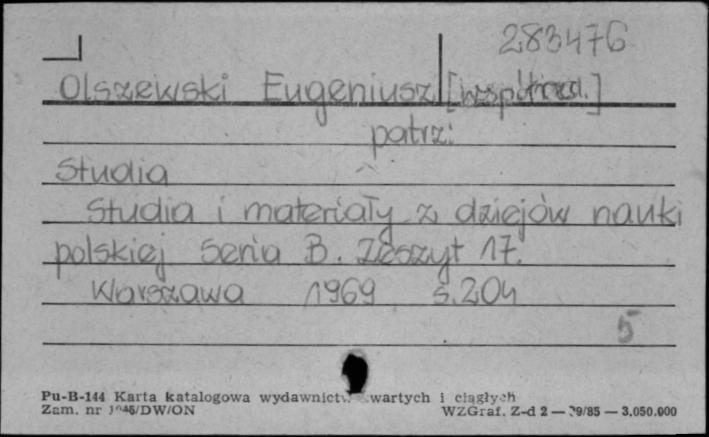 283476
Olszewski Eugeniusz [współred.]
patrz:
Studia
Studia i materiały z dziejów nauki
polskiej Seria B. Zeszyt 17.
Warszawa 1969 s.204
5
Pu-B-144 Karta katalogowa wydawnictw zwartych i ciągłych
Zam. nr /DW/ON WZGraf. Z-d 2 — 29/85 — 3.050.000